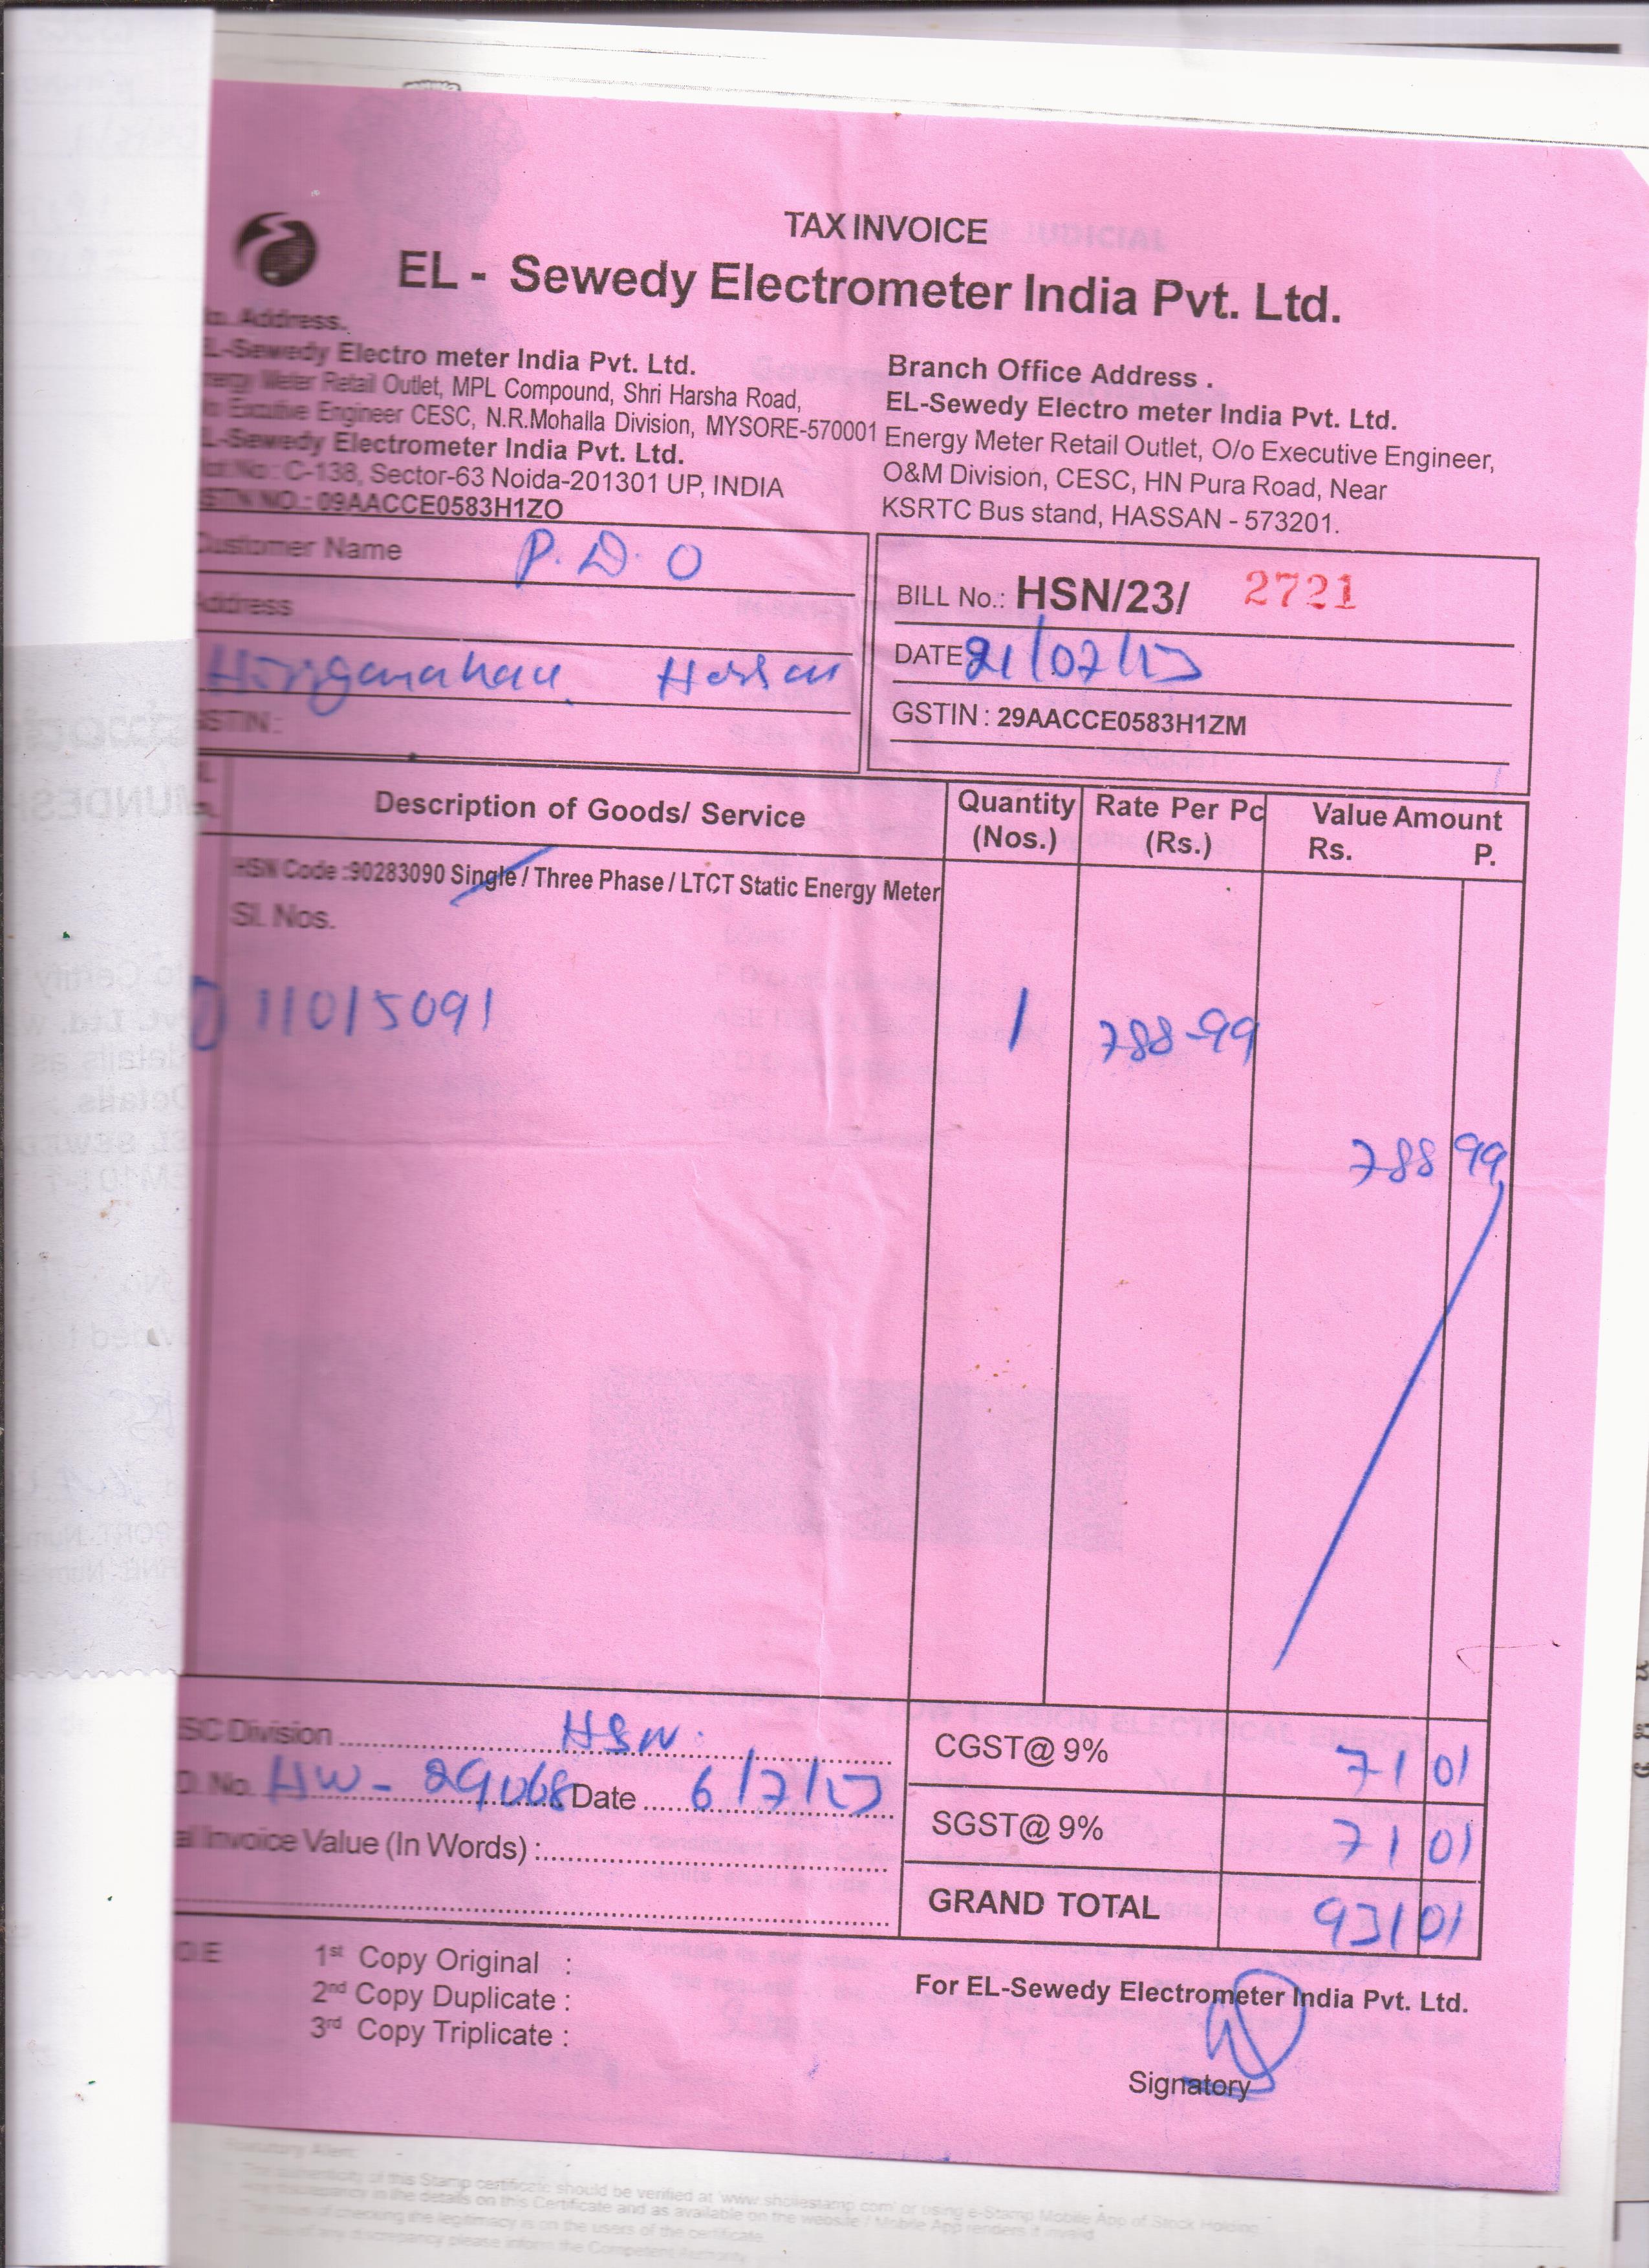 TAX INVOICE
EL - Sewedy Electrometer India Pvt. Ltd.
Address.
EL-Sewedy Electro meter India Pvt. Ltd.
Energy Meter Retail Outlet, MPL Compound, Shri Harsha Road,
Excutive Engineer CESC, N.R.Mohalla Division, MYSORE-570001
EL-Sewedy Electrometer India Pvt. Ltd.
C-138, Sector-63 Noida-201301 UP, INDIA
GSTN NO.: 09AACCE0583H1ZO
Branch Office Address .
EL-Sewedy Electro meter India Pvt. Ltd.
Energy Meter Retail Outlet, O/o Executive Engineer,
O&M Division, CESC, HN Pura Road, Near
KSRTC Bus stand, HASSAN - 573201.
Customer Name P. D. O
Address
Hassan
GSTIN :
BILL No.: HSN/23/ 2721
DATE 21/07/23
GSTIN : 29AACCE0583H1ZM
Description of Goods/ Service
Quantity (Nos.)
Rate Per Pc (Rs.)
Value Amount
Rs. P.
HSN Code :90283090 Single / Three Phase / LTCT Static Energy Meter
Sl. Nos.
11015091 1 788-99
788 99
SC Division HSN.
D. No. HW - 29068 Date 6/7/23
al Invoice Value (In Words) :
CGST@ 9% 71 01
SGST@ 9% 71 01
GRAND TOTAL 931 01
1st Copy Original :
2nd Copy Duplicate :
3rd Copy Triplicate :
For EL-Sewedy Electrometer India Pvt. Ltd.
Signatory